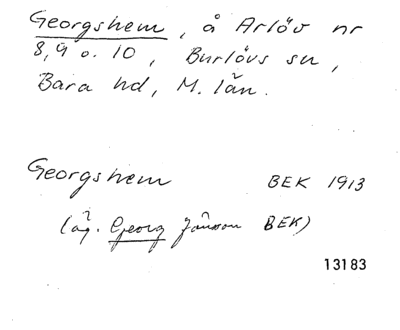 Georgshem, å Arlöv nr
8, 9 o. 10, Burlövs sn,
Bara hd, M. län.
Georgshem BEK 1913
(äg. Georg Jönsson BEK)
13183